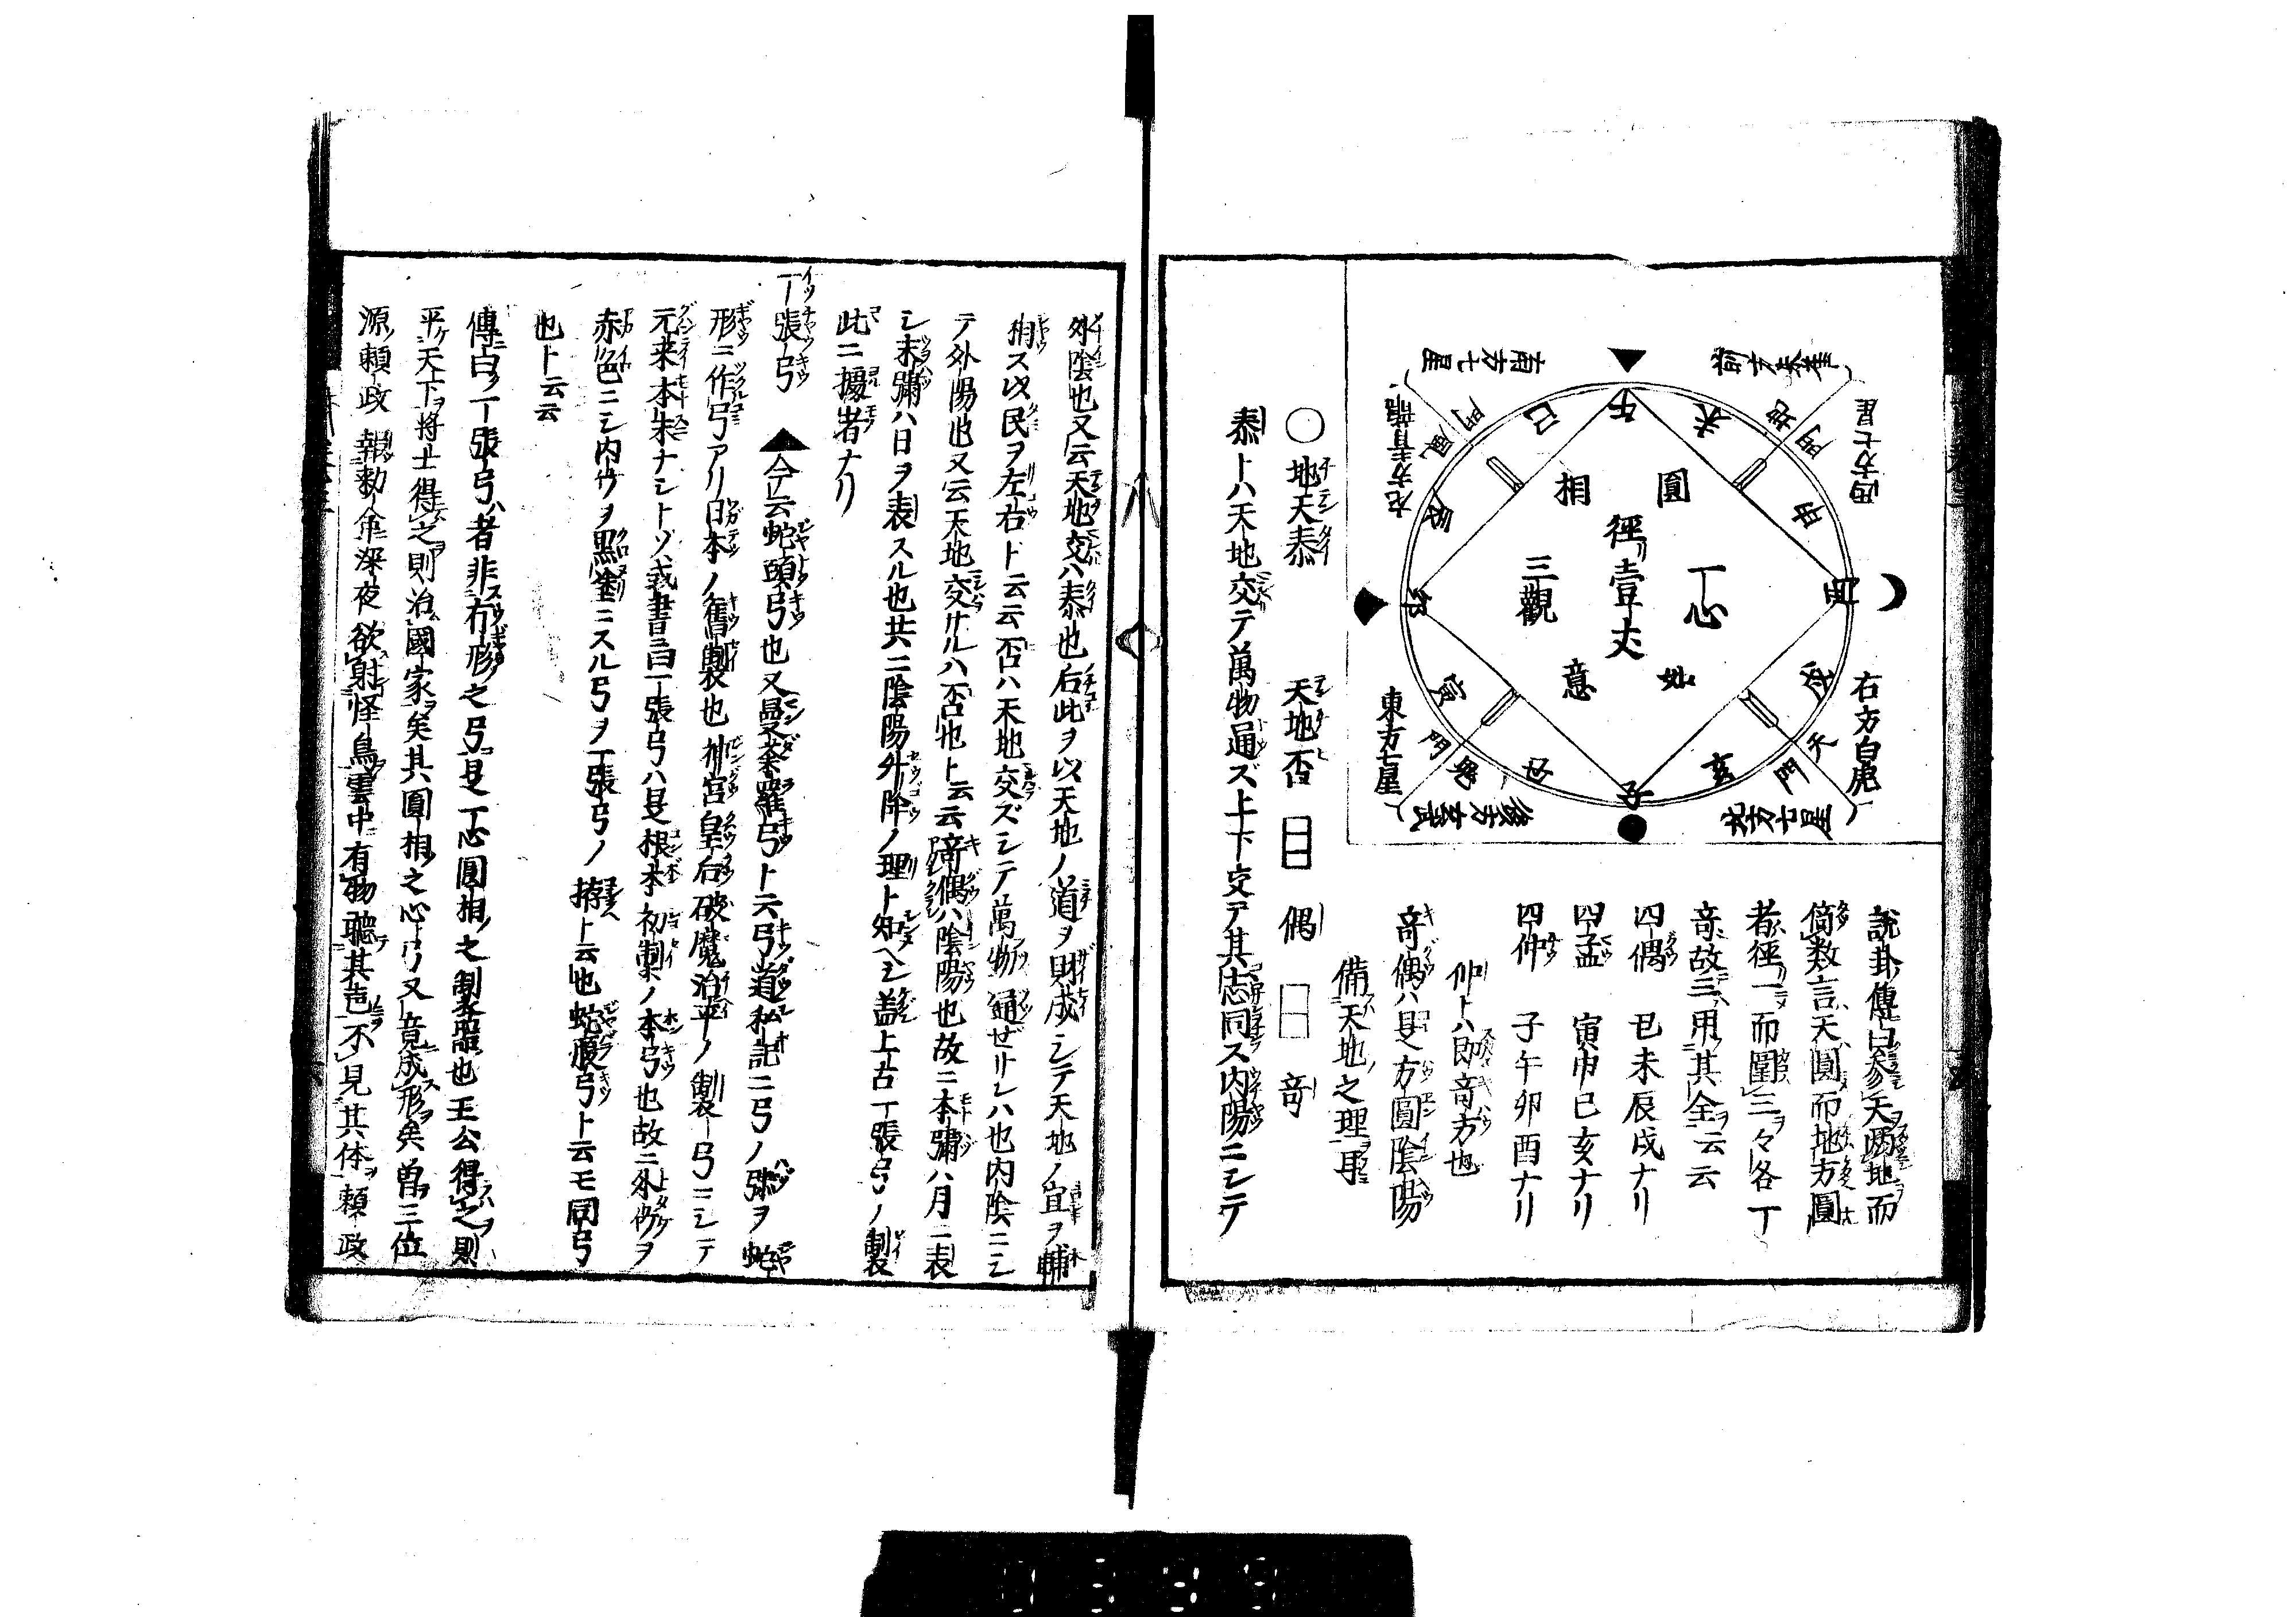 南方朱雀
西方七星
南方七星
左方青龍
右方白虎
北方七星
後方玄武
東方七星
地門
風門
天門
鬼門
午
未
申
酉
戌
亥
子
丑
寅
卯
辰
巳
圓
相
徑リ壹丈
一心
三觀
如
意
說卦傳曰参天兩地而
倚數言天圓而地方圓
者徑一而圍三々各一
竒故三用其全云云
四偶 丑未辰戌ナリ
四孟 寅申巳亥ナリ
四仲 子午卯酉ナリ
仲トハ即竒方也
竒偶ハ是方圓陰陽
備天地之理耳
○地天泰 天地否 偶 竒
泰トハ天地交テ萬物通ズ上下交テ其志同ス内陽ニシテ
外陰也又云天地交ハ泰也后此ヲ以天地ノ道ヲ財成シテ天地ノ宜ヲ輔
相ス以民ヲ左右ト云云否ハ天地交ズシテ萬物通ゼザレハ也内陰ニシ
テ外陽也又云天地交ザルハ否也ト云云竒偶ハ陰陽也故ニ本彌ハ月ニ表
シ末彌ハ日ヲ表スル也共ニ陰陽升降ノ理ト知ヘシ盖上古一張弓ノ製
此ニ據者ナリ
一張弓 ▲今云蛇頭弓也又曼荼羅弓ト云弓道私記ニ弓ノ弭ヲ蛇
形ニ作弓アリ日本ノ舊製也神宮皇后破魔治平ノ製弓ニシテ
元来本朱ナシトゾ或書曰一張弓ハ是根本初製ノ本弓也故ニ外竹ヲ
赤色ニシ内竹ヲ黒塗ニスル弓ヲ一張弓ノ拵ト云也蛇腹弓ト云モ同弓
也ト云云
傳曰ク一張弓ハ者非有形之弓是一心圓相之制器也王公得之則
平天下將士得之則治國家矣其圓相之心弓又竟成形矣曽三位
源頼政 報勅命深夜欲射怪鳥雲中有物聽其声不見其体頼政